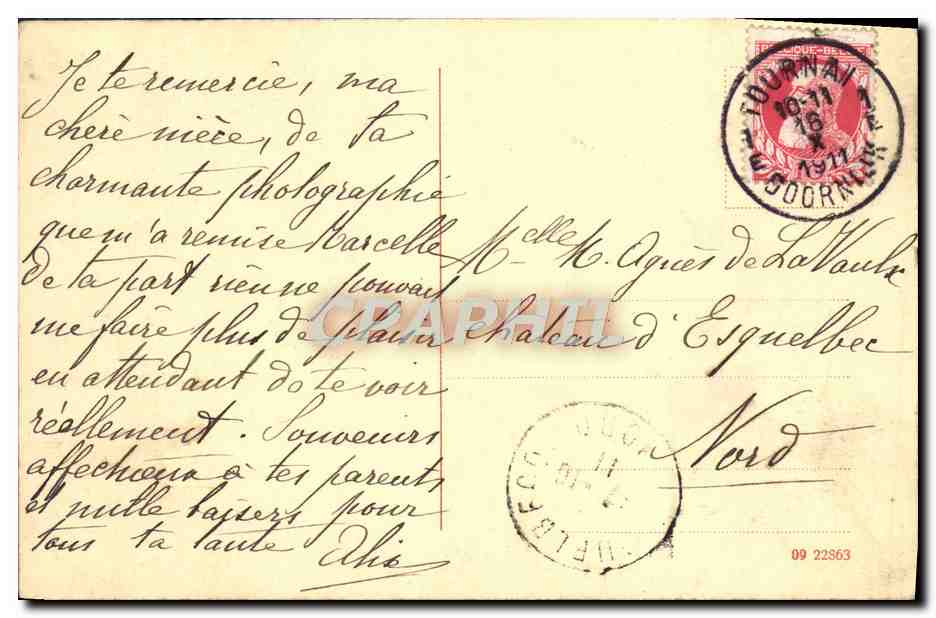 Je te remercie, ma
chère nièce, de ta
charmante photographie
que m'a remise Marcelle
de ta part rien ne pouvait
me faire plus de plaisir
en attendant de te voir
réellement. Souvenirs
affectueux à tes parents
et mille baisers pour
tous ta tante Alix
BELGIQUE-BELGIË
TOURNAI 1
10-11
16
X
1911
DOORNIJK
Melle M. Agnès de La Vaulx
château d'Esquelbec
Nord
CPAPHIL
09 22863